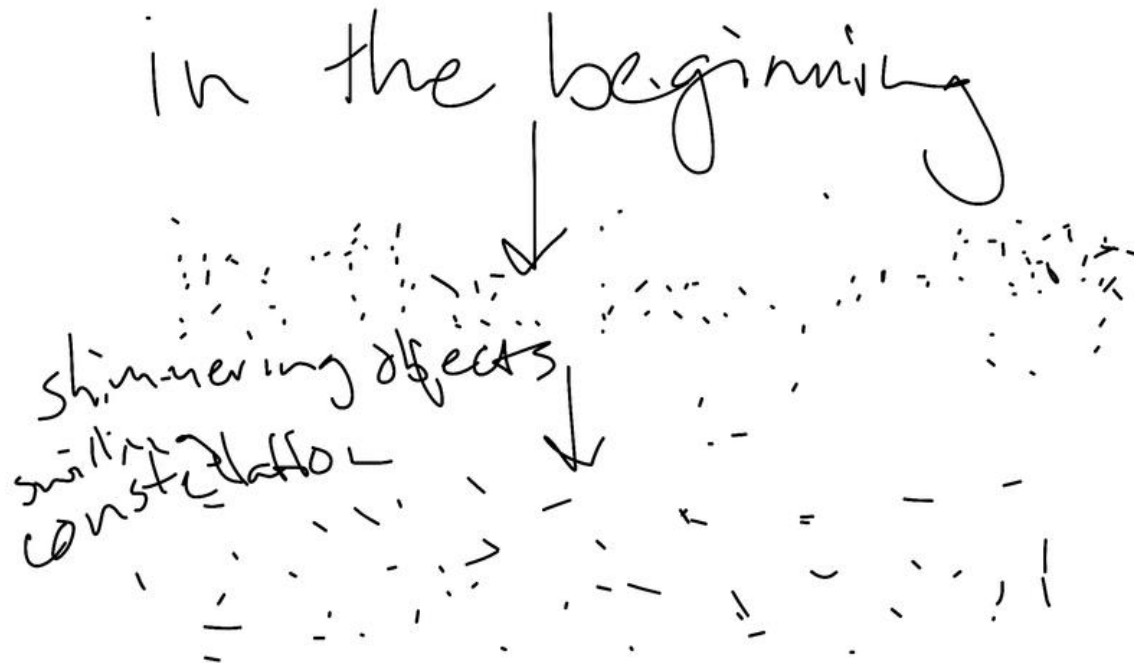 in the beginning
shimmering objects
smiling
constellation